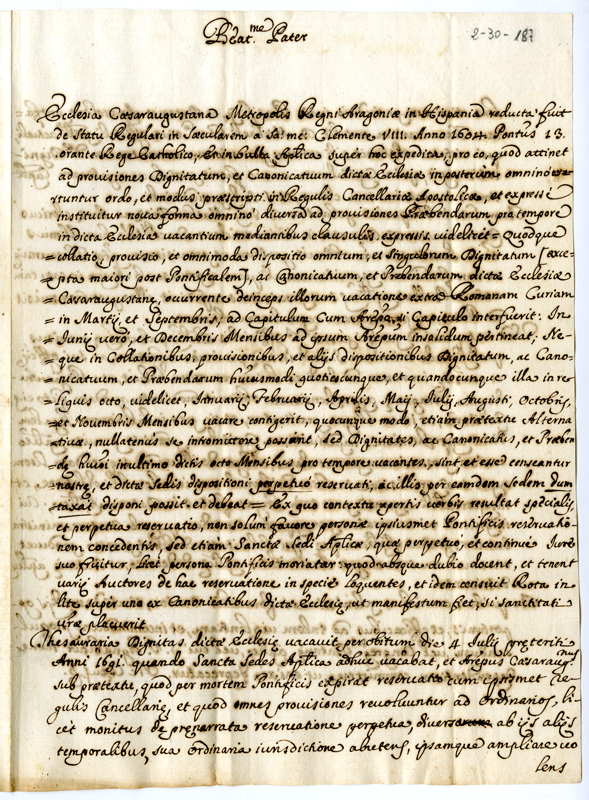 2-30-187
Beat.me Pater
Ecclesia Cæsaraugustana Metropolis Regni Aragoniæ in Hispania reducta fuit
de Statu Regulari in Sæcularem a Sa: me: Clemente VIII. Anno 1604. Pontus 13.
orante Rege Catholico, et in bulla Aplica super hoc expedita, pro eo, quod attinet
ad provisiones Dignitatum, et Canonicatuum dictæ Ecclesiæ in posterum omnino
rtuntur ordo, et modus præscripti in Regulis Cancellariæ Apostolicæ, et expressè
instituitur nova forma omnino diversa ad provisiones Præbendarum pro tempore
in dicta Ecclesia vacantium mediantibus clausulis expressis videlicet = Quodque
= collatio, provisio, et omnimoda dispositio omnium, et singulorum Dignitatum [exce-
= pta maiori post Pontificalem], ac Canonicatuum, et Præbendarum dictæ Ecclesiæ
= Cæsaraugustanę, occurrente deinceps illorum vacatione extra Romanam Curiam
= in Martij, et Septembris; ad Capitulum Cum Arēpo, si Capitulo interfuerit: In
= Junij vero, et Decembris Mensibus ad ipsum Arēpum insolidum pertineat; Ne-
= que in Collationibus, provisionibus, et alijs dispositionibus Dignitatum, ac Cano-
= nicatuum, et Præbendarum huiusmodi quotiescunque, et quandocunque illa in re-
= liquis octo, videlicet, Januarij, Februarij, Aprilis, Maij, Julij, Augusti, Octobris,
= et Novembris Mensibus vacare contigerit, quocunque modo, etiam prætextu Alterna-
= tivæ, nullatenus se intromittere possint, sed Dignitates, ac Canonicatus, et Præben
= dę huiōi in ultimo dictis octo Mensibus pro tempore vacantes, sint, et esse censeantur
= nostrę, et dictæ Sedis dispositioni perpetuò reservati, ac illis per eamdem Sedem dum
= taxat disponi possit, et debeat = Ex quo contextu apertis verbis resultat specialis,
et perpetua reservatio, non solum favore personæ ipsiusmet Pontificis reservatio-
nem concedentis, sed etiam Sanctæ Sedi Aplicæ, quæ perpetuo, et continuè Jure
suo fruitur, licet persona Pontificis moriatur: quod absque dubio docent, et tenent
varij Auctores de hac reservatione in specie loquentes, et idem censuit Rota in
lite super uno ex Canonicatibus dictæ Ecclesię, ut manifestum fiet, si Sanctitati
vræ placuerit
Thesauraria Dignitas dictæ Ecclesię vacavit per obitum die 4 Julij pręteriti
Anni 1691. quando Sancta Sedes Aplica adhuc vacabat, et Arēpus Cæsaraug.nus
sub prætextu, quod per mortem Pontificis expirat reservatio cum ipsismet Re-
gulis Cancellarię, et quod omnes provisiones revolvuntur ad Ordinarios, li-
cèt monitus de prenarrata reservatione perpetua, diversa ab ijs alijs
temporalibus, sua ordinaria iurisdictione abutens, ipsamque ampliare vo
lens